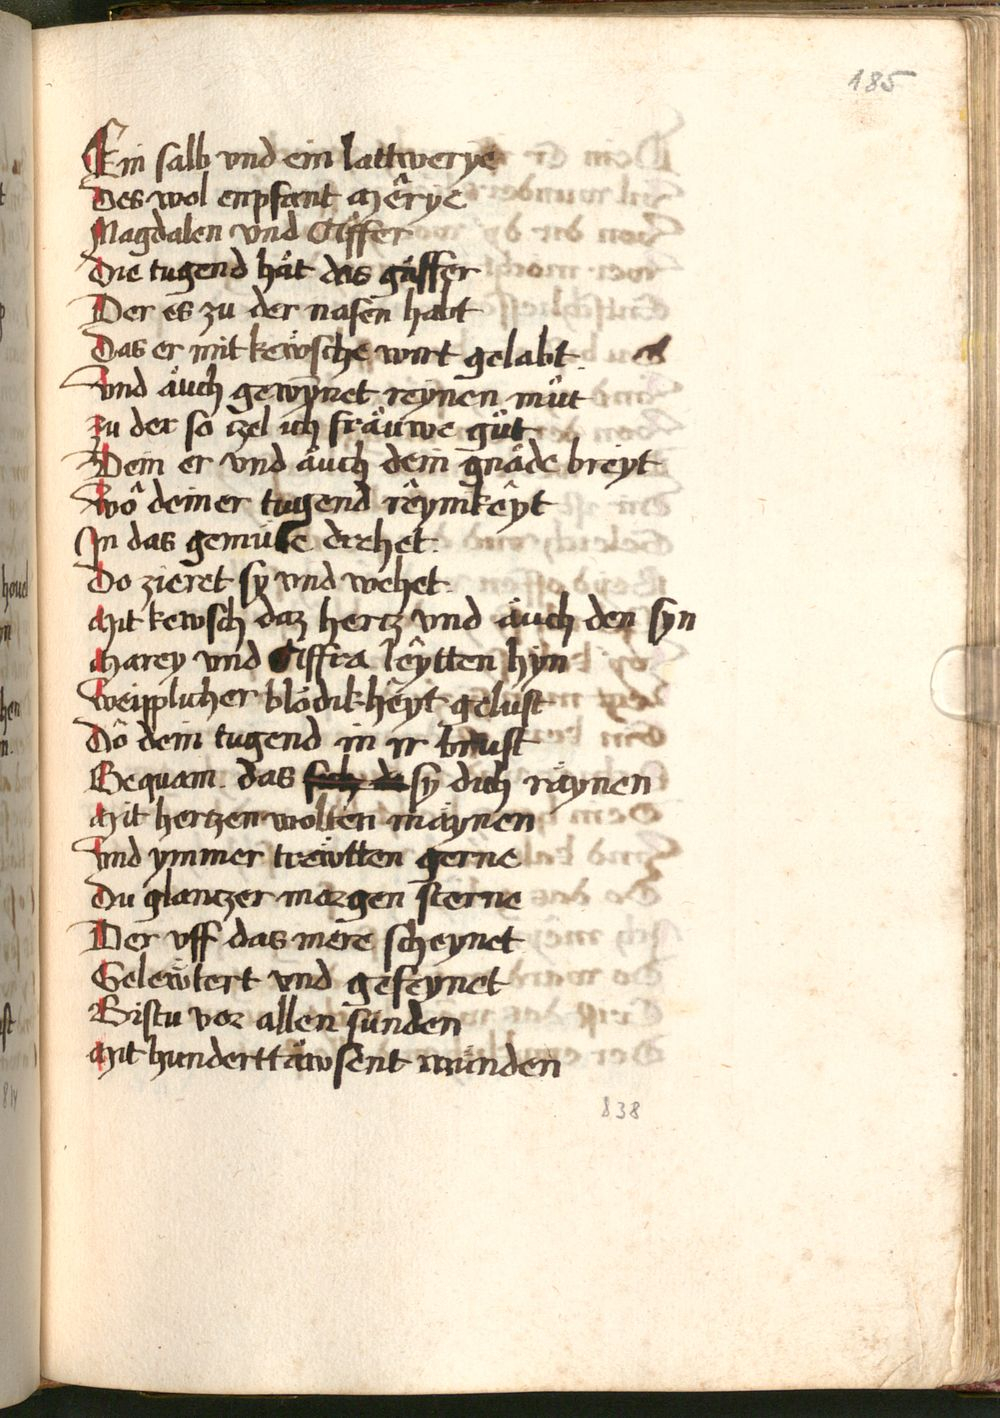 185
Ein salb vnd ein lattwerye
Des wol enpfant Mêrye
Magdalen vnd Affter
Die tugend hät das gäffer
Der es zu der nasen habt
Das er mit kewsche wirt gelabt.
Vnd äuch gewynet reynen müt
Zu der so zel ich fräuwe güt
Dein er vnd äuch dein gnäde breyt
Wô deiner tugend rêynikêyt
In das gemüte drehet.
Do zieret sy vnd wehet.
Mit kewsch daz hertz vnd äuch den syn
Marey vnd Affra lêytten hyn
Weipplicher blödikhëyt gelust
Dô dein tugend in ir brust
Bequam. das sy dich räynen
Mit hertzen wolten mäynen
Vnd ymmer trewtten gerne
Du glantzer morgen sterne
Der vff das mere scheynet
Gelewtert vnd gefeynet
Bistu vor allen sünden
Mit hunderttäwsent wünden
838